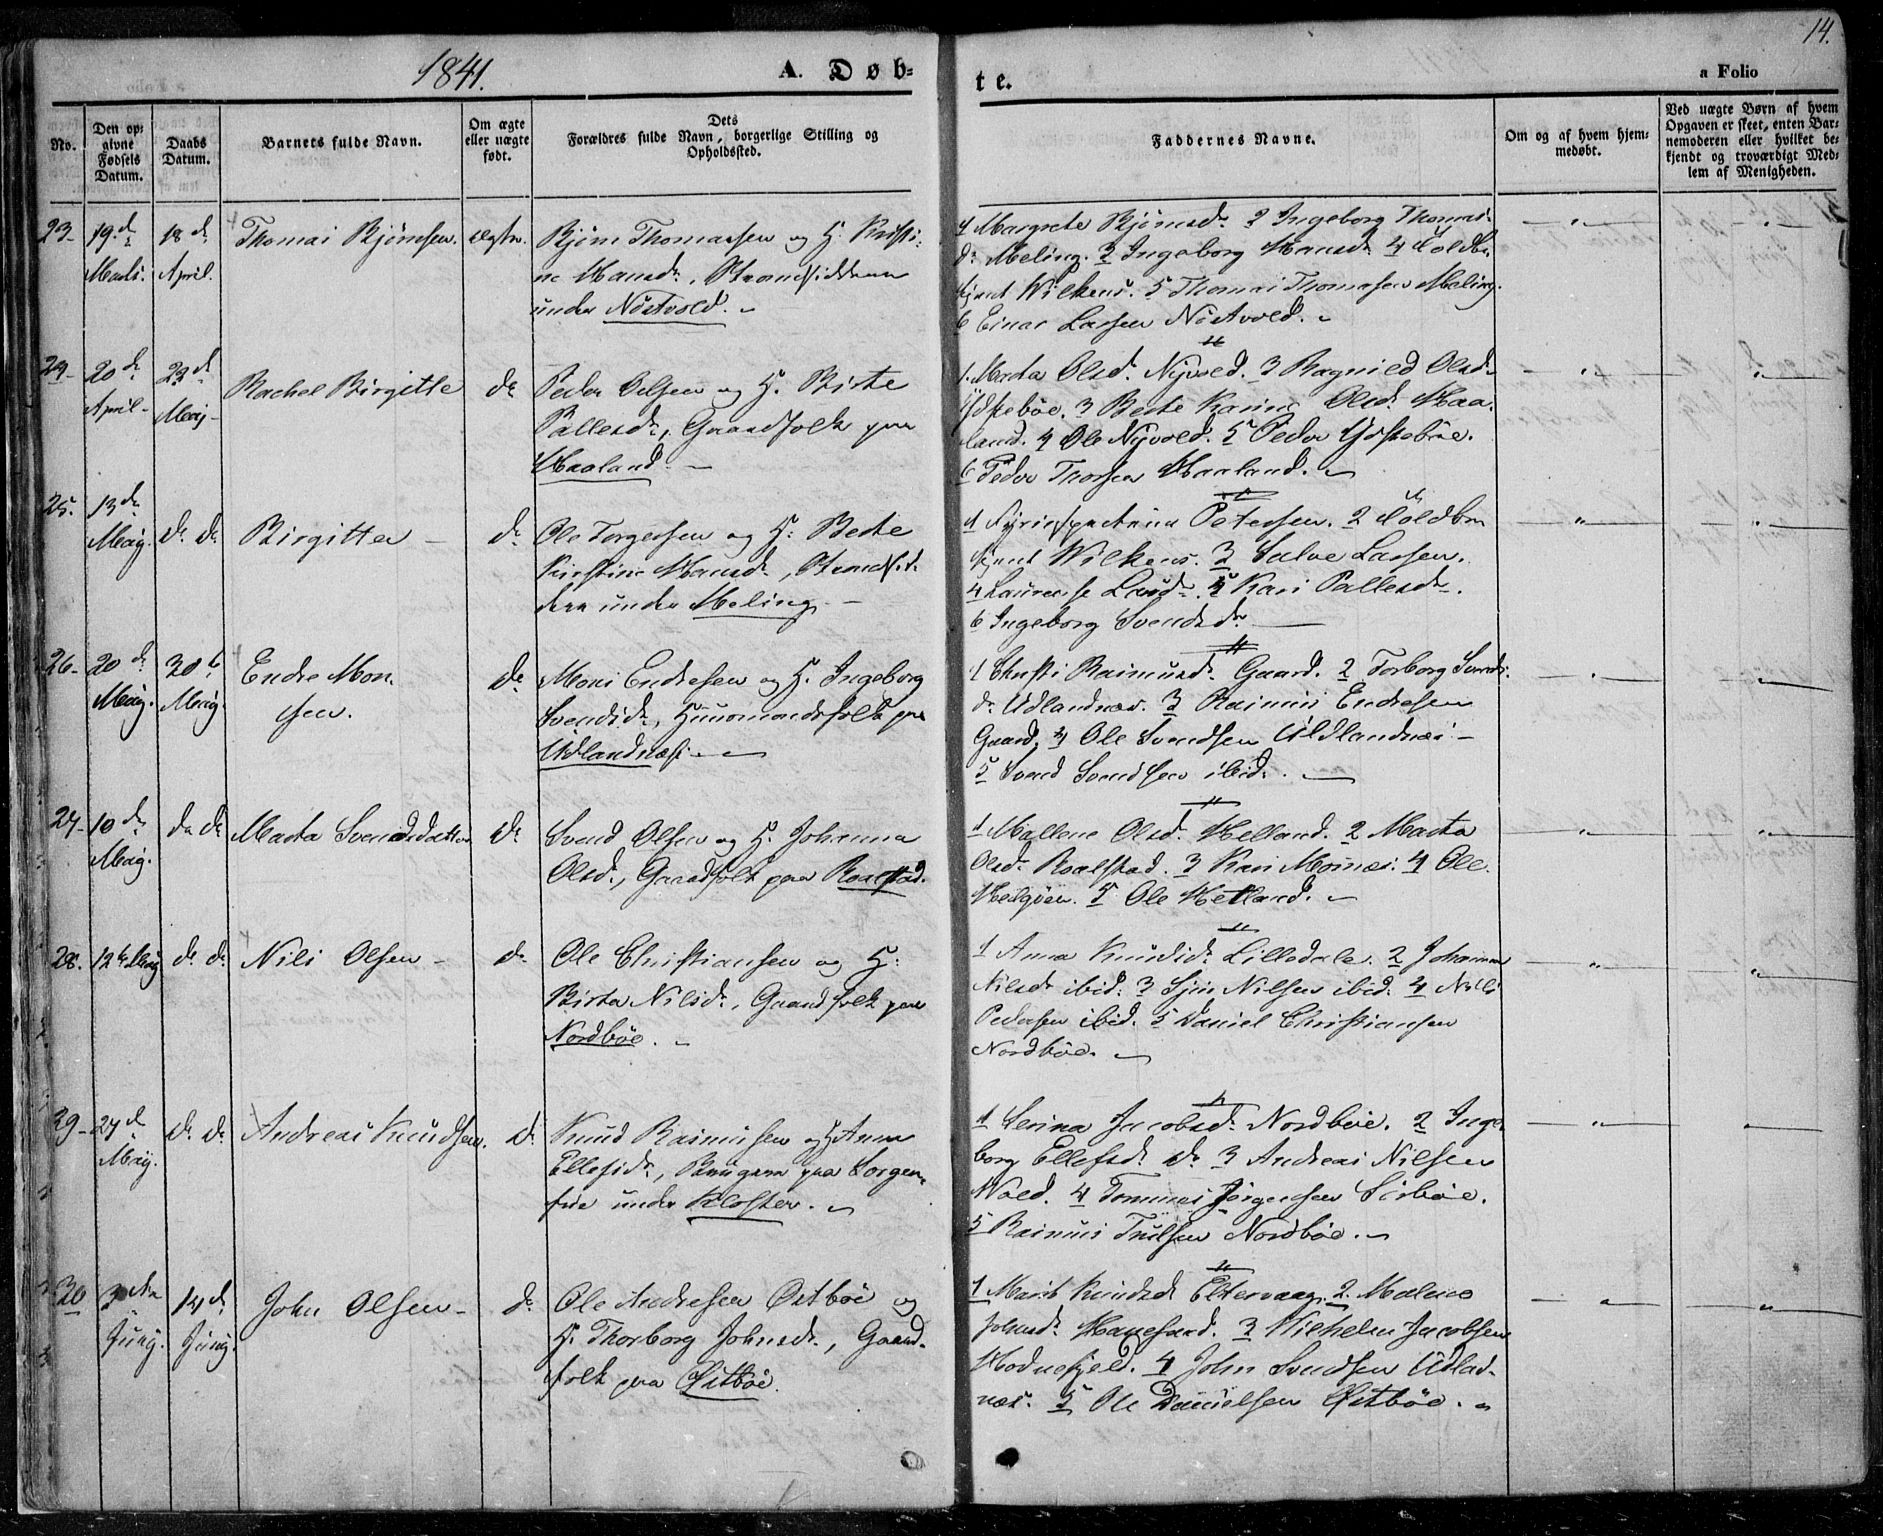 1841.
A. Døb=
te.
14.
a Folio
No.
Den op=
givne
Fødsels
Datum.
Daabs
Datum.
Barnets fulde Navn.
Om ægte
eller uægte
født.
Dets
Forældres fulde Navn, borgerlige Stilling og
Opholdssted.
Faddernes Navne.
Om og af hvem hjem=
medøbt.
Ved uægte Børn af hvem
Opgaven er skeet, enten Bar=
nemoderen eller hvilket be=
kjendt og troværdigt Med=
lem af Menigheden.
23-
19.de
Marts.
18 de
April.
Thomas Bjørnsen.
Bjørn Thomassen og H. Kristi-
ne Hansd:, Strandsiddere
under Nöstvold.
1 Margrete Bjørnsd: 2 Ingeborg Thomas-
d: Meling. 3 Ingeborg Hansd: 4 Toldbe-
tjent Wilkens. 5 Thomas Thomasen Meling.
6 Einar Larsen Nöstvold.
24-
20 de
April-
23 d
Maj-
Rachel Birgitte
do
Peder Olsen og H. Birte
Pallesd:, Gaardfolk paa
Haaland.
1. Marta Olsd: Nyvold. 2 Ragnild Olsd:
Ydstebøe. 3 Berte Karine Olsd: Haa-
land. 4 Ole Nyvold. 5 Peder Ydstebøe.
6 Peder Thorsen Haaland.
25.
13 de
Maij.
do do
Birgitte
do
Ole Torgersen og H: Berte
Kirstine Hansd:, Strandsid-
dere under Meling.
1 Fyrinspecteur Petersen. 2 Toldbe-
tjent Wilkens. 3 Salve Larsen.
4 Laurense Larsd: 5 Kari Pallesd:.
6 Ingeborg Svendsd:
26-
20 de
Maij.
30 t
Maij.
Endre Mon-
sen.
do
Mons Endresen og H. Ingeborg
Svendsd:, Huusmandsfolk paa
Udlandnæs.
1 Christi Rasmusd: Gaard. 2 Torborg Svends-
d: Udlandnæs. 3 Rasmus Endresen
Gaard. 4 Ole Svendsen Udlandnæs-
5 Svend Svendsen ibid:.
27-
10 de
Maij.
do do
Marta Svendsdatter
do
Svend Olsen og H. Johanna
Olsd:, Gaardfolk paa Roalstad.
1 Mallene Olsd: Helland. 2 Marta
Olsd: Roalstad. 3 Kari Mosnæs. 4 Ole
5 Ole Hetland.
28.
12 te Maij
do do
Nils Olsen-
do
Ole Christiansen og H:
Birta Nilsd:, Gaardfolk paa
Nordbøe.
1 Anna Knudsd: Lilledale. 2 Johanna
Nilsd: ibid: 3 Nilsen ibid: 4 Nils
Pedersen ibid. 5 Daniel Christiansen
Nordbøe.
29-
27 d
Maij.
do do
Andreas Knudsen.
do
Knud Rasmusen og H Anna
Ellefsd:, Brugere paa Sorgen-
frie under Kloster.
1 Serina Jacobsd: Nordbøe. 2 Inge-
borg Ellefsd: do 3 Andreas Nilsen
Vold. 4 Tommes Jørgensen Sørbøe.
5 Rasmus Nordbøe.
30
3 die
Junij.
14 d.
Junij.
John Olsen-
do
Ole Andresen Østbøe og
H. Thorborg Johnsd:, Gaard-
folk paa Østbøe.
1 Marit Knudsd Eltervaag. 2. Malene
Johnsd: Hanesand. 3 Vilhelm Jacobsen
Hodnefjeld. 4 John Svendsen Udland-
næs. 5 Ole Danielsen Østbøe.